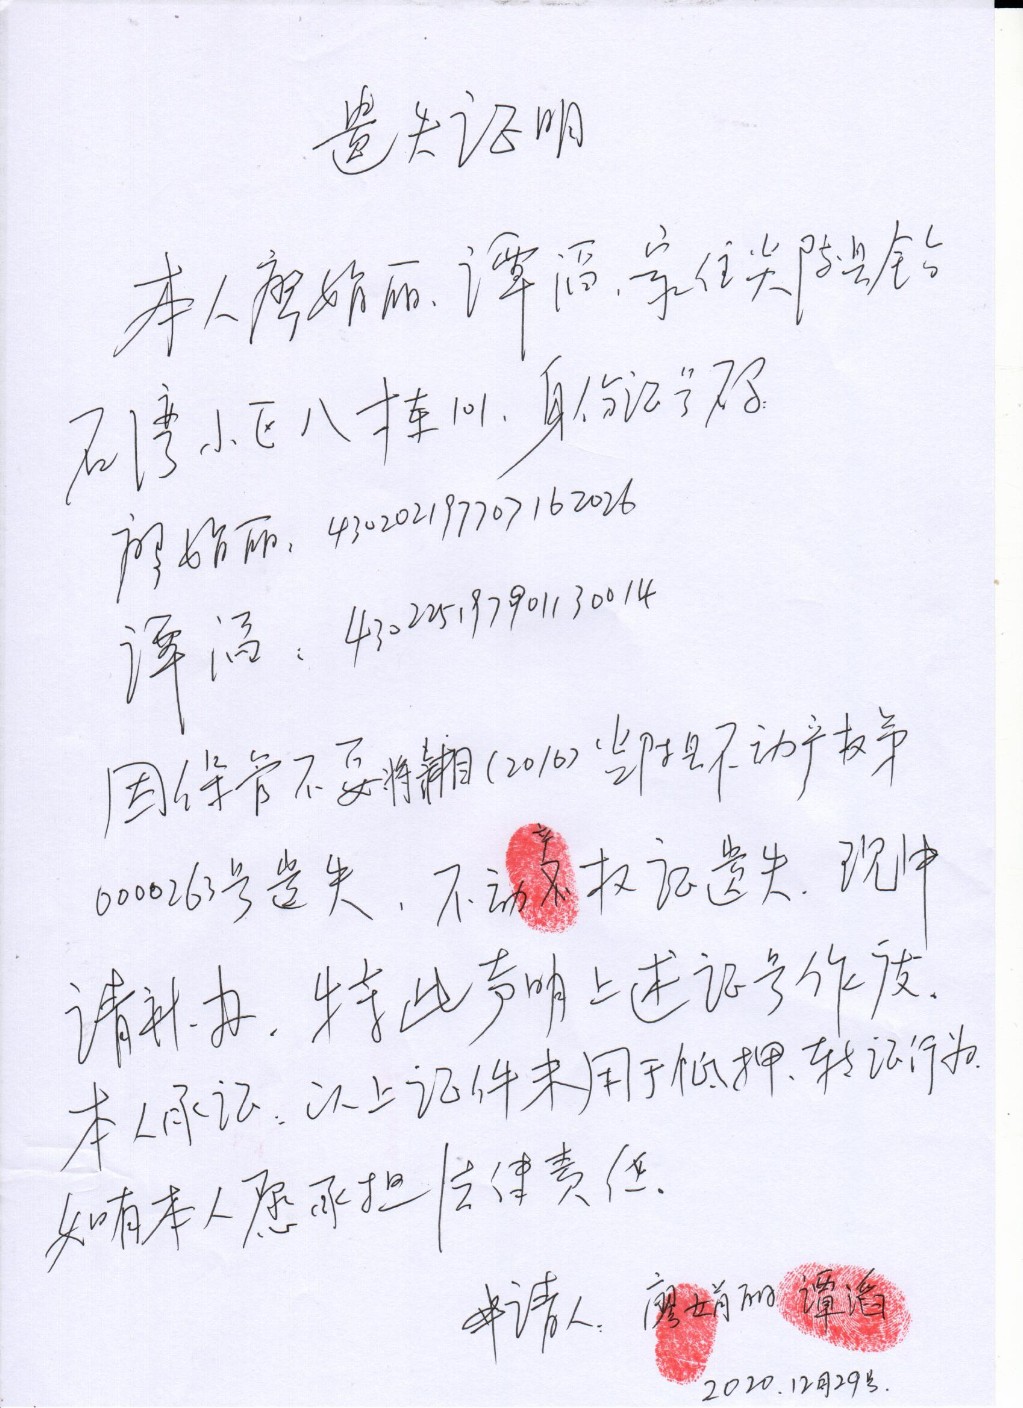 遗失证明
本人廖娟丽、谭滔、家住炎陵县钻
石湾小区八栋101、身份证号码:
廖娟丽:430202197707162026
谭滔:430225197901130014
因保管不妥将湘(2016)炎陵县不动产权第
0000263号遗失,不动产权证遗失.现申
请补办.特此声明上述证号作废.
本人承证:以上证件未用于抵押、转证行为.
如有本人愿承担法律责任.
申请人:廖娟丽 谭滔
2020.12月29号.